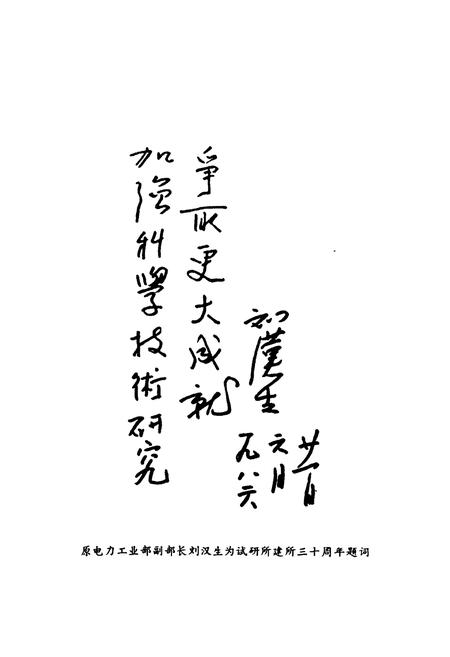 加强科學技術研究
爭取更大成就
刘漢生
一九八六
六月
廿一日
原电力工业部副部长刘汉生为试研所建所三十周年题词